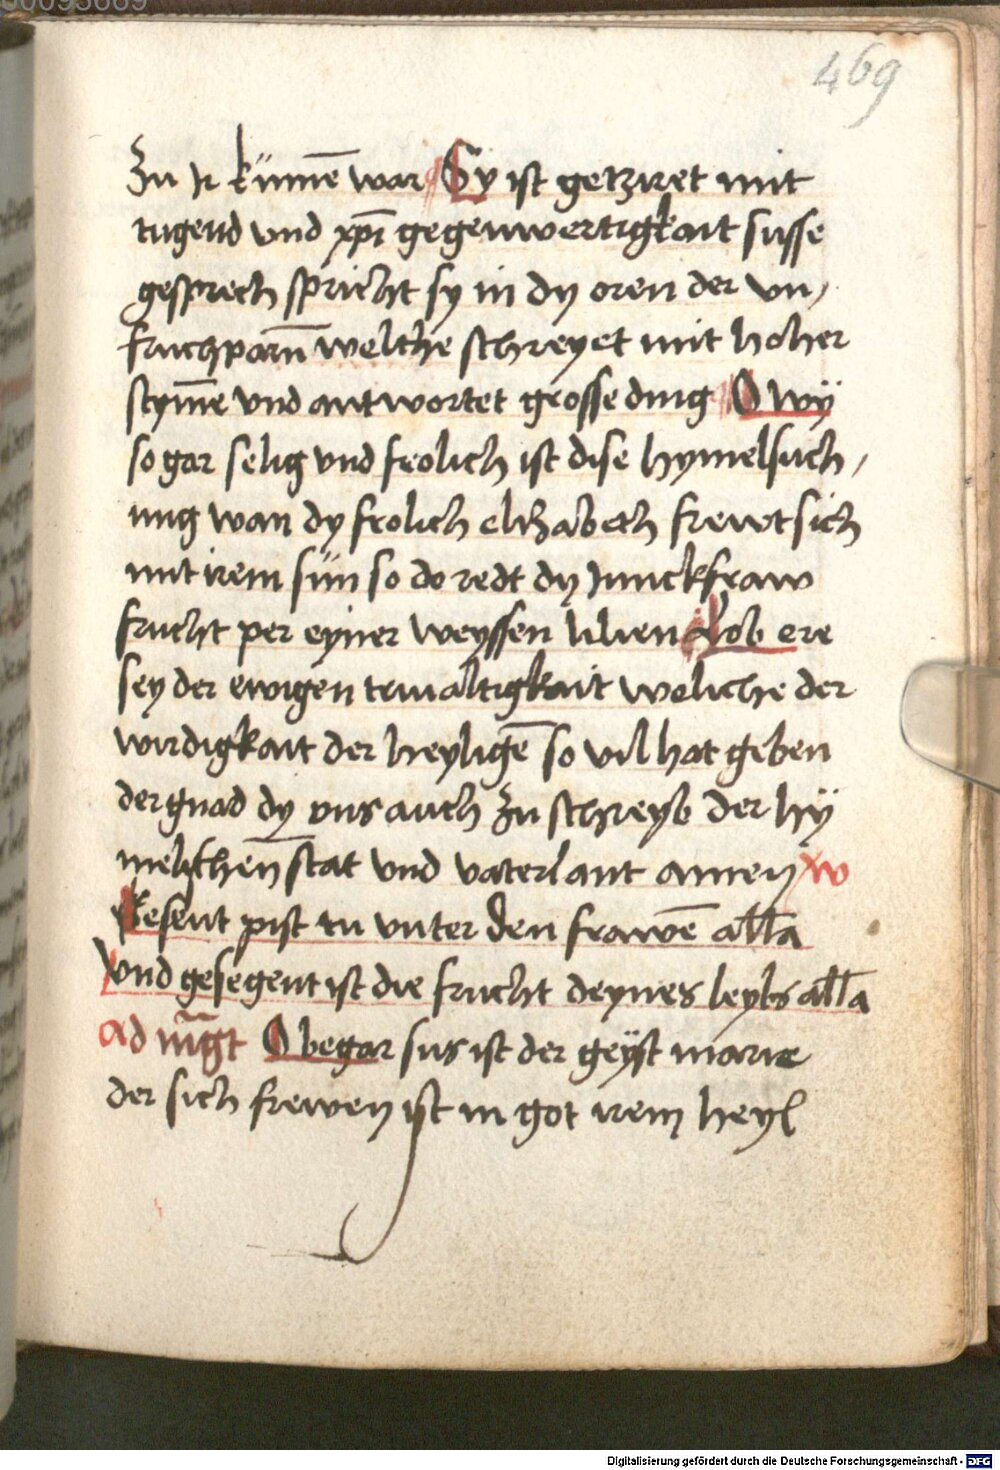 469
zu ir kümē war Sy ist getziret mit
tugend vnd xp̄i gegenwertigkait susse
gesprech spricht sy in dy oren der vn,
fruchparn̄ welche schreyet mit hoher
stym̄e vnd antwortet grosse ding O wÿ
so gar selig vnd frolich ist dise hymelsuch,
ung wan dy frolich elizabeth frewt sich
mit irem sün so do redt dy Junckfraw
frucht per eyner weyssen lilien Lob ere
sey der ewigen triualtigkait weliche der
wirdigkait der heyligē so vil hat geben
der gnad dy vns auch zu schreyb der hÿ
melischen̄ stat vnd vaterlant amen w
Gesent pist tu vnter den frawē alla
vnd gesegent ist die frucht deynes leybs alla
Ad mḡt O begar sus ist der geÿst marie
der sich frewen ist in got irem heyl
Digitalisierung gefördert durch die Deutsche Forschungsgemeinschaft - DFG